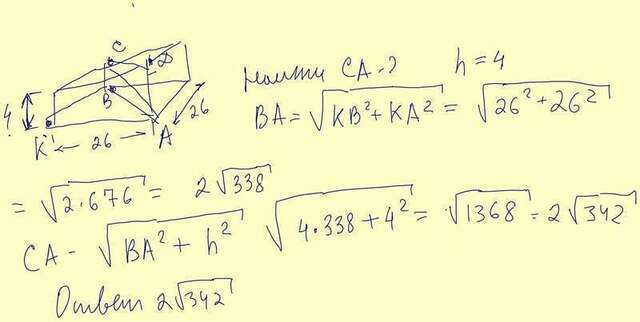 C
D
B
4
26
K
26
A
найти CA-?
h=4
BA=√(KB²+KA²)=√(26²+26²)
=√(2·676)=2√338
CA-√(BA²+h²) √(4·338+4²)=√1368=2√342
Ответ 2√342